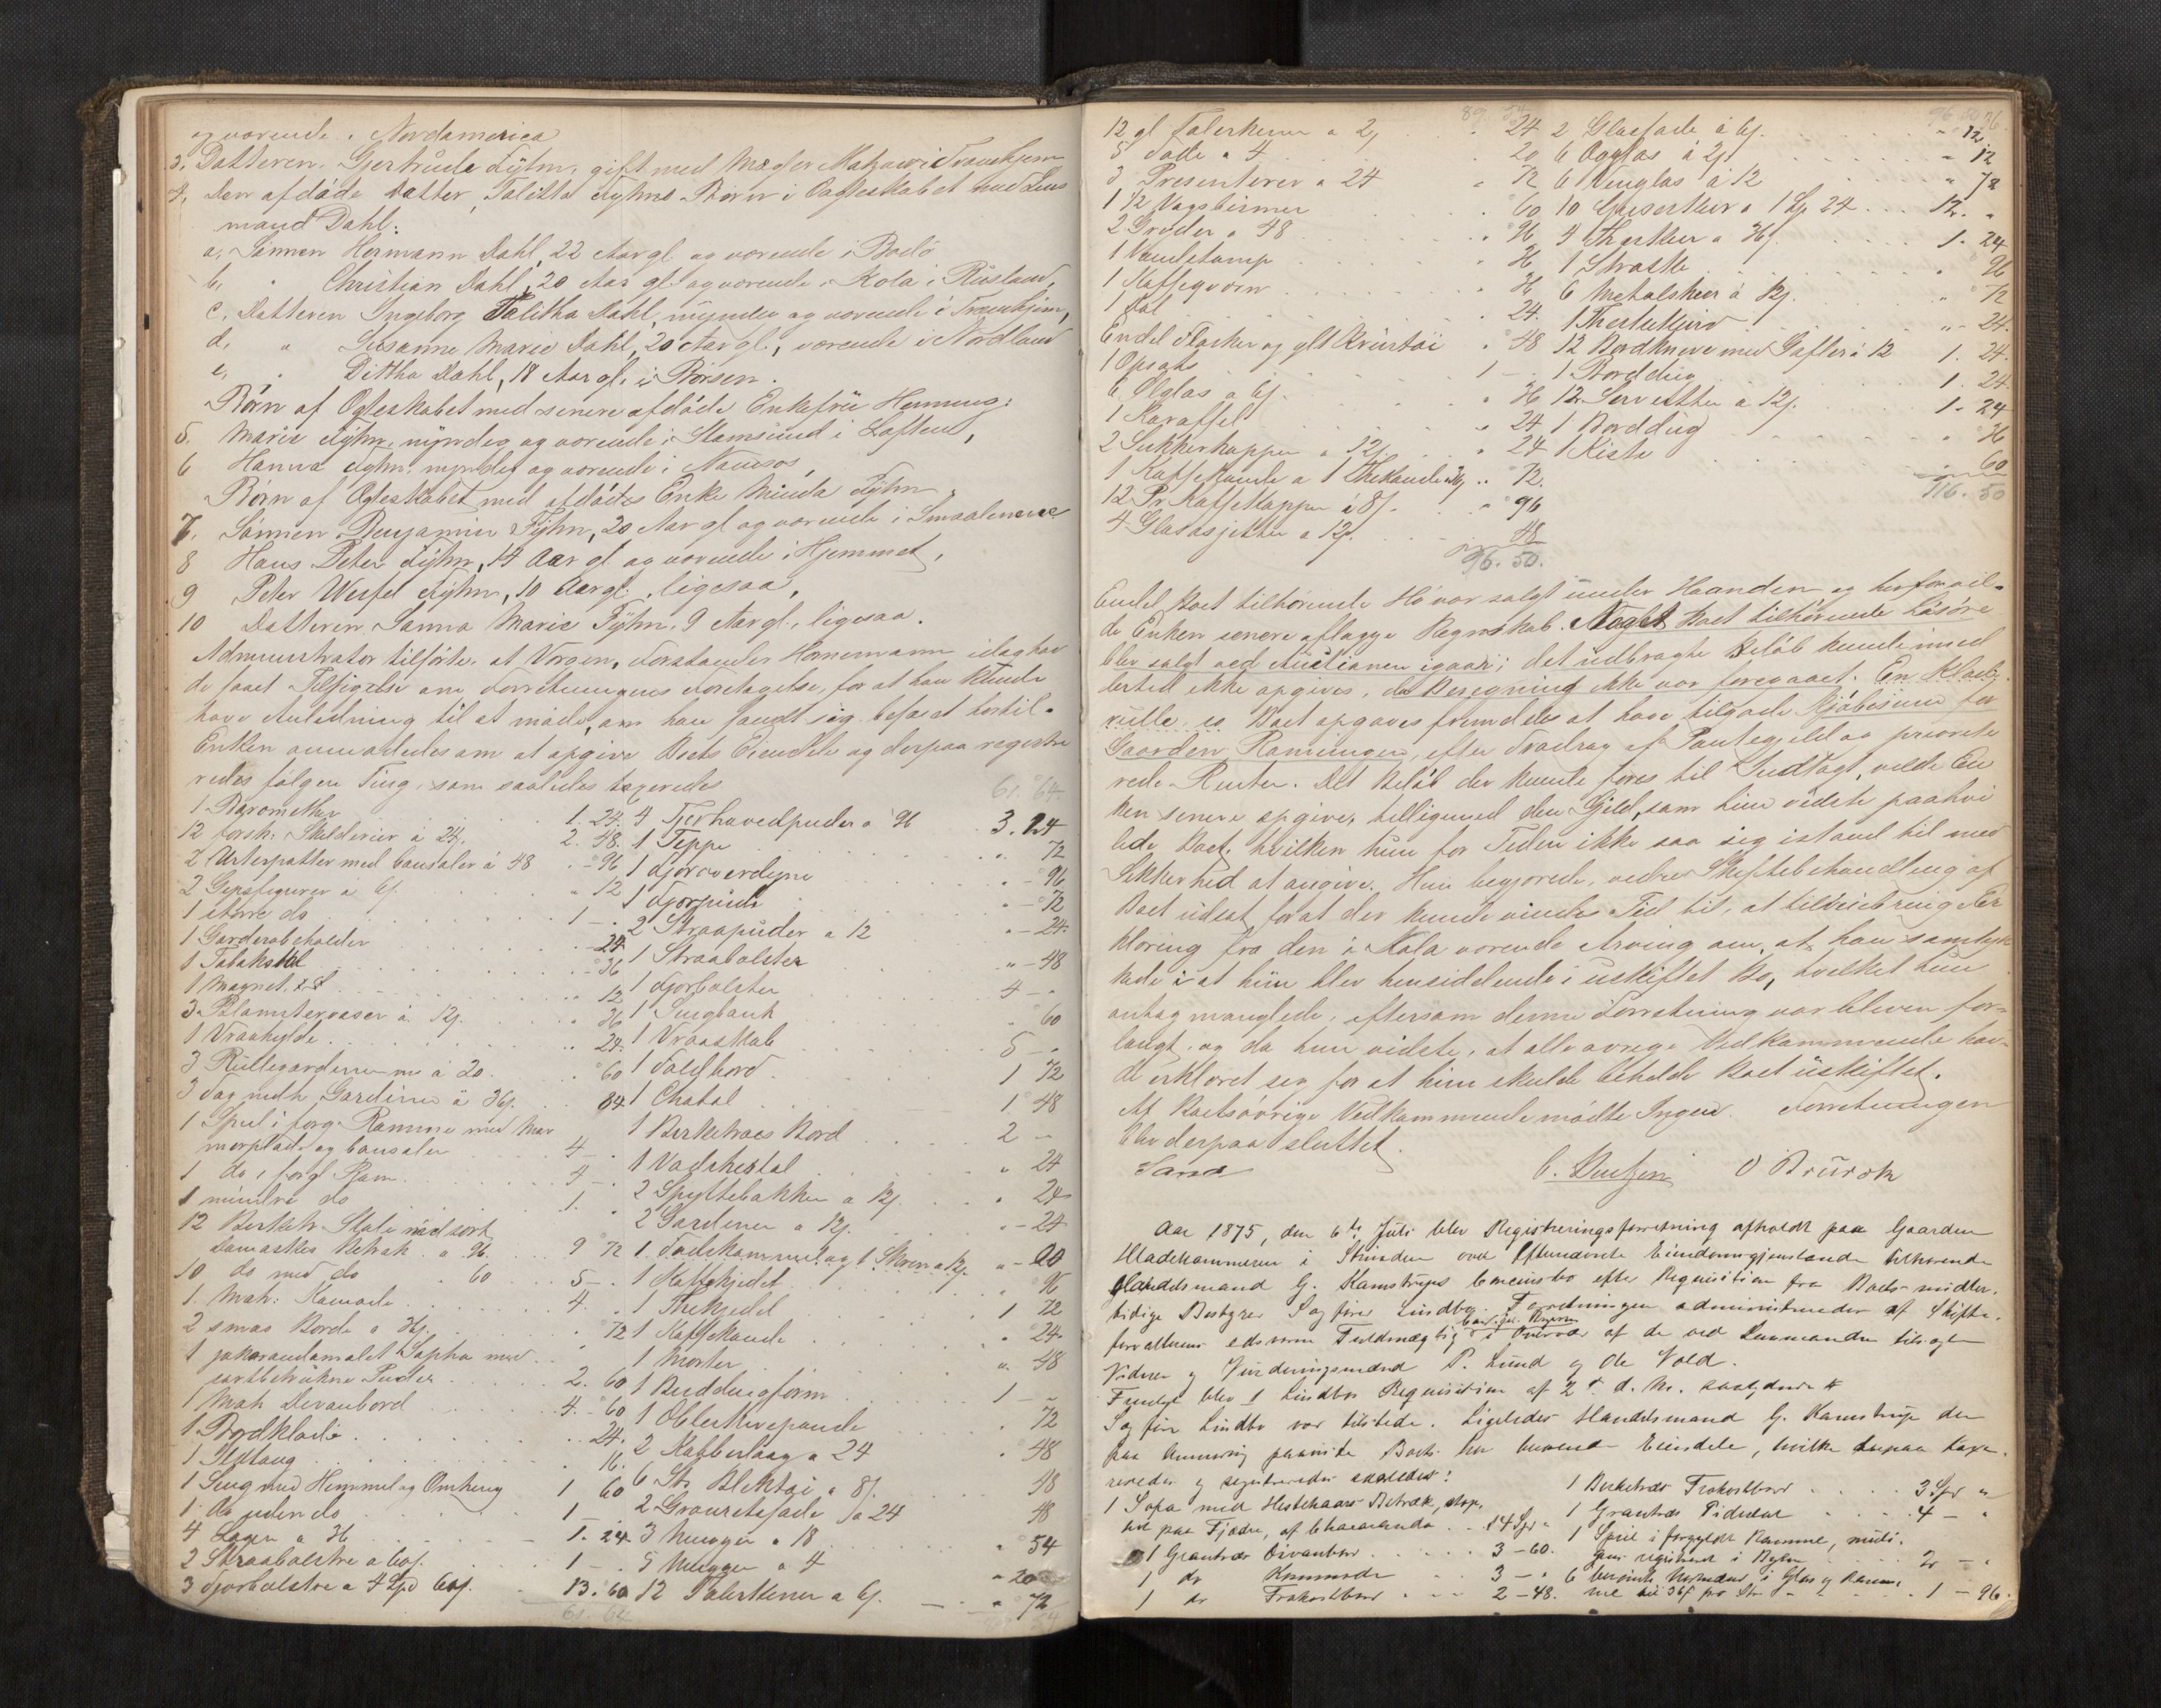 og værende i Nordamerica
3, Datteren Gjertrude Fyhn, gift med Mægler Matzow i Trondhjem
4, Den afdøde Datter, Talitha Fyhns Børn i Ægteskabet med Lens
mand Dahl:
a, Sønnen Hermann Dahl, 22 Aar gl og værende i Bodø
b, " Christian Dahl, 20 Aar gl og værende i Kola i Rusland,
c, Datteren Ingeborg Talitha Dahl, myndig og værende i Trondhjem,
d, " Susanne Marie Dahl, 20 Aar gl., værende i Nordland
e, " Dittha Dahl, 18 Aar gl. i Børsen.
Børn af Ægteskabet med senere afdøde Enkefrue Henning:
5. Marie Fyhn, myndig og værende i Stamsund i Lofoten,
6 Hanna Fyhn, myndig og værende i Namsos,
Børn af Ægteskabet med afdødes Enke Minda Fyhn,
7. Sønnen Benjamin Fyhn, 20 Aar gl og værende i Smaalenene
8 Hans Peter Fyhn, 14 Aar gl og værende i Hjemmet,
9 Peter Wessel Fyhn, 10 Aar gl., ligesaa,
10 Datteren Sanna Marie Fyhn, 9 Aar gl., ligesaa.
Administrator tilførte, at Værgen, Forstander Hornemann idag hav
de faaet Tilsigelse om Forretningens Foretagelse, for at han kunde
have Anledning til at møde, om han fandt sig beføiet hertil.
Enken anmodedes om at opgive Boets Eiendele og derpaa registre
redes følgen Ting, som saaledes taxeredes
61. 64
1 Baromether 1. 24.
12 forsk. Skilderier à 24 2. 48.
2 Urtepotter med Consoler à 48 - 96
2 Gipsfigurer a 6 " 12
1 større do 1 - .
1 Garderobeholder - 24
1 Tobaksbord - 36
1 Magnet .. 12
3 Blomstervaser à 12 .. 36
1 Vraahylde .. 24.
3 Rullegardiner à 20 .. 60
3 Fag Gardiner à 36 84
1 Speil i forg. Ramme med Mar
morplade og Consoler 4 - .
1 do i forgl. Ram 4 - .
1 mindre do 1. .
12 Birketr. Stole med sort
Damaskes Betræk a 96. 9 72
10 do med do 60 5 - .
1. Mah: Komode 4. .
2 smaa Borde a 36 72
1 jakarandamalet Sopha med
sortbetrukne Puder 2. 60
1 Mah Divanbord 4. 60
1 Bordklæde .. 24.
1 16.
1 Seng med Himmel og Omheng 1 60
1 do uden do 1 -
4 Lagen a 36 1. 24
2 Straabolstre a 60 1 - .
3 Fjorbolstre a 4 Spd 60 13. 60
61. 64
4 Fjerhovedpuder a 96 3. 24
1 Teppe " 72
1 Fjoroverdyne - 96
1 Fjorpude - 72
2 Straapuder a 12 - 24.
1 Straabolster " - 48
1 Fjorbolster 4 - .
1 Sengbænk " 60
1 Vraaskab 5 - .
1 Foldbord 1 72
1 Chatol 1 48
1 Birketræes Bord 2 -
1 Vadskestol " 24
2 Spyttebakker a 12 . 24
2 Gardener a 12 . - 24
1 og 1 Skrin a 12 " - 20
1 Kaffekjedel . 96
1 Thekjedel 1 72
1 Kaffekande . 24.
1 Morter " 48
1 Buddingform 1 -
1 Obleskivepande . 72
2 Kobberlaag a 24 . 48
6 St. Bliktøi a 8 48
2 a 24 48
3 Mugger a 18 . 54
5 Mugger a 4 . 20
12 Talerkener a 6 - . 72
89 54
12 gl Talerkener a 2 . 24
5 Fade a 4 . 20
3 Presenterer a 24 " 72
1 1/2 60
2 Gryder a 48 . 96
1 Vandstamp . 36
1 Kaffeqværn . 36
1 . 24.
Endel Flasker og glt Krustøi . 48
1 Opsats 1 - .
6 Ølglas a 6 . 36
1 Karaffel . 24
2 Sukkerkopper a 12 . 24
1 Kaffekande a 1 Thekande .. 72.
12 Pr Kaffekopper à 8 . 96
4 Glasasjetter a 12 48
96. 50.
2 Glasfade à 6 . 12
6 Ægglas à 2 . 12
6 Vinglas à 12 . 72
10 Spiseskeer a 1 Sp 24 12. .
4 Theskeer a 36 1. 24
1 . 96
6 Metalskeer à 12 . 72
1 . 24.
12 Bordknive med Gafler à 12 1. 24.
1 Borddug 1. 24.
12 Servietter a 12 1. 24
1 Borddug . 36
1 Kiste . 60
116. 50
Endel Boet tilhørende Hø var solgt under Haanden og herfor vil-
de Enken senere aflægge Regnskab. Noget Boet tilhørende Løsøre
blev solgt ved Auctionen igaar; det udbragte Beløb kunde imid
lertid ikke opgives, da Beregning ikke var foregaaet. En Klæd
rulle es Boet opgaves fremdeles at have tilgode Kjøbesum for
Gaarden Ramungen, efter Fradrag af Pantegjeld og priorite
rede Renter. Det Beløb der kunde føres til Indtægt, vilde En
ken senere opgive, tilligemed den Gjæld, som hun vidste paahvi
lede Boet, hvilken hun for Tiden ikke saa sig istand til med
Sikkerhed at angive. Hun begjærede, videre Skiftebehandling af
Boet udsat for at der kunde vindes Tid til, at tilveiebringe Er
klæring fra den i Kola værende Arving om, at han samtyk
kede i at hun blev hensiddende i uskiftet Bo, hvilket hun
antog manglede, eftersom denne Forretning var bleven for-
langt, og da hun vidste, at alle øvrige Vedkommende hav-
de erklæret sig for at hun skulde beholde Boet uskiftet.
Af Boets øvrige Vedkommende mødte Ingen. Forretningen
blev derpaa sluttet.
Sand C. Knutzen O Brurok
Aar 1875, den 6te Juli blev Registreringsforretning afholdt paa Gaarden
Hladehammeren i Strinden over Eftermeldte Eiendomsgjenstande tilhørende
Handelsmand G. Kamstrups Concursbo efter Requisition fra Boets midler-
tidige Bestyrer Sagfører Lindbo. Forretningen administreredes af Skifte-
forvalterens edsvorne Fuldmægtig i Overvær af de ved Lensmanden tilsagte
Vidner og Vurderingsmænd P. Lund og Ole Vold.
Fremlagt blev 1 Lindbos Requisition af 2d. d. M. saalydende #
Sagfører Lindbo var tilstede. Ligeledes Handelsmand G. Kamstrup der
paa Anmodning paaviste Boets her værende Eiendele, hvilke derpaa taxe-
redes og registreredes saaledes:
1 Sofa med Hestehaars Betræk, stop-
pet paa Fjædre, af Chacaranda 14 Spd "
1 Grantræs Divanbord 3 - 60.
1 do Kommode 3 - .
1 do Frokostbord 2 - 48.
1 Birketræs Frokostbord 3 Spd "
1 Grantræs Pidestal 4 - .
1 Speil i forgyldt Ramme, tidli-
gere registreret i Byen 2 - .
6 i Glas og Ramme
36 pr St 1 - 96.